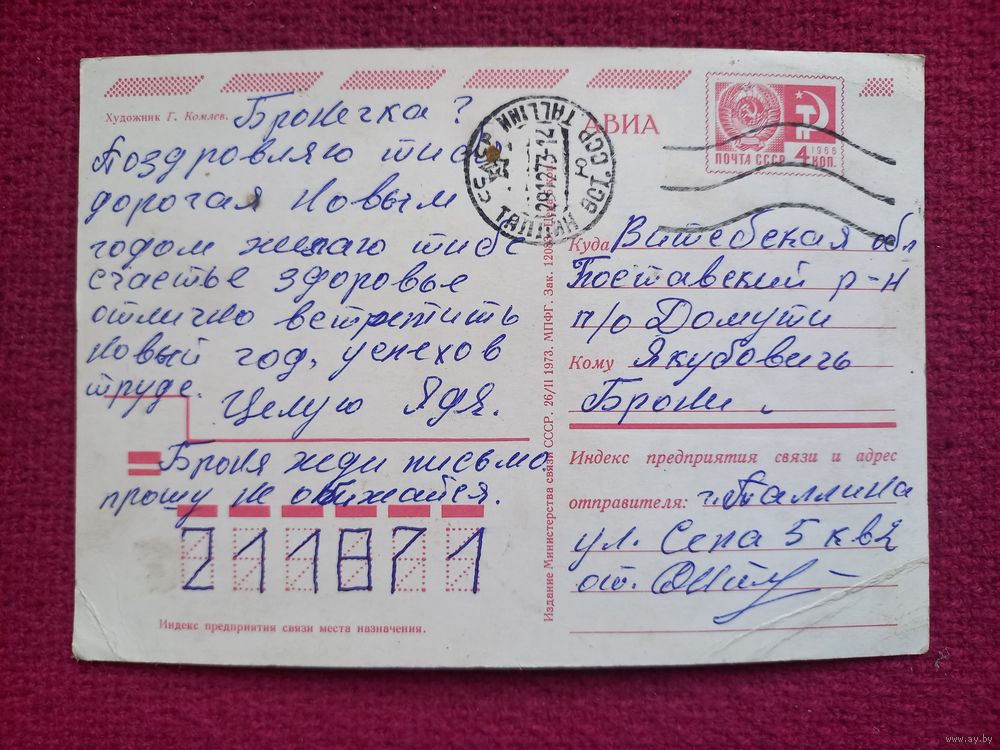 Художник Г. Комлев.
Бронечка?
Поздровляю тиб
дорогая Новым
годом желаю тибе
счастье здоровье
отлично встретить
новый год, успехов
труде. Целую Ядя.
Броня жди письмо
прошу не обижайся.
211871
Индекс предприятия связи места назначения.
АВИА
ПОЧТА СССР 4 КОП.
1966
TALLINN
ТАЛЛИН
281273-14
Издание Министерства связи СССР. 26/II 1973. МПФГ. Зак. 1208
Куда Витебская обл
Поставский р-н
п/о Домути
Кому Якубовичь
Брони.
Индекс предприятия связи и адрес
отправителя: г. Таллина
ул. Сепа 5 кв 2
от.
www.ay.by